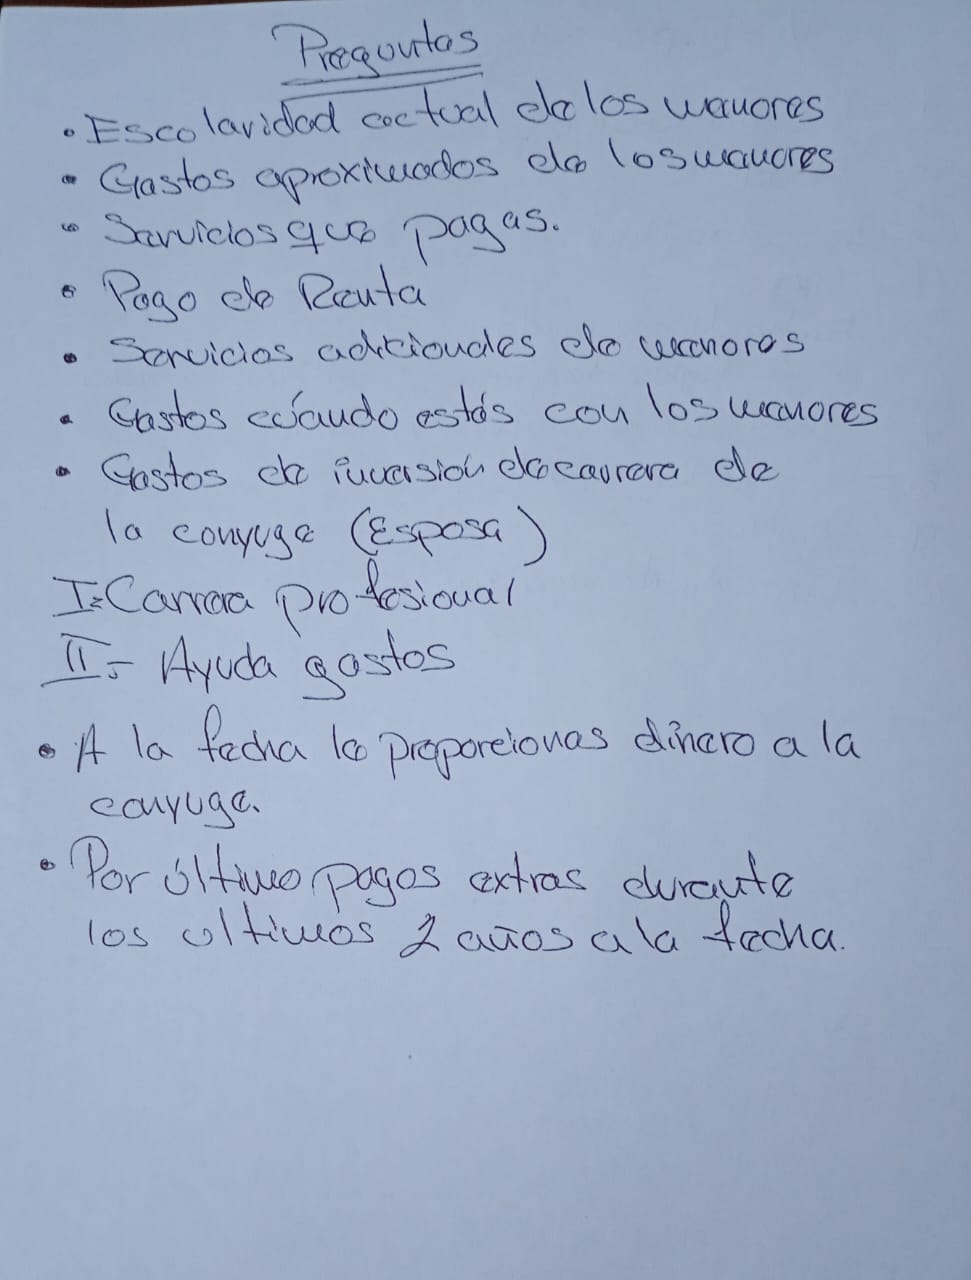 Preguntas
• Escolaridad actual de los menores
• Gastos aproximados de los menores
• Servicios que pagas.
• Pago de Renta
• Servicios adicionales de menores
• Gastos cuándo estás con los menores
• Gastos de inversión de carrera de
la conyuge (Esposa)
I.- Carrera profesional
II.- Ayuda gastos
• A la fecha le proporcionas dinero a la
conyuge.
• Por último pagos extras durante
los ultimos 2 años a la fecha.